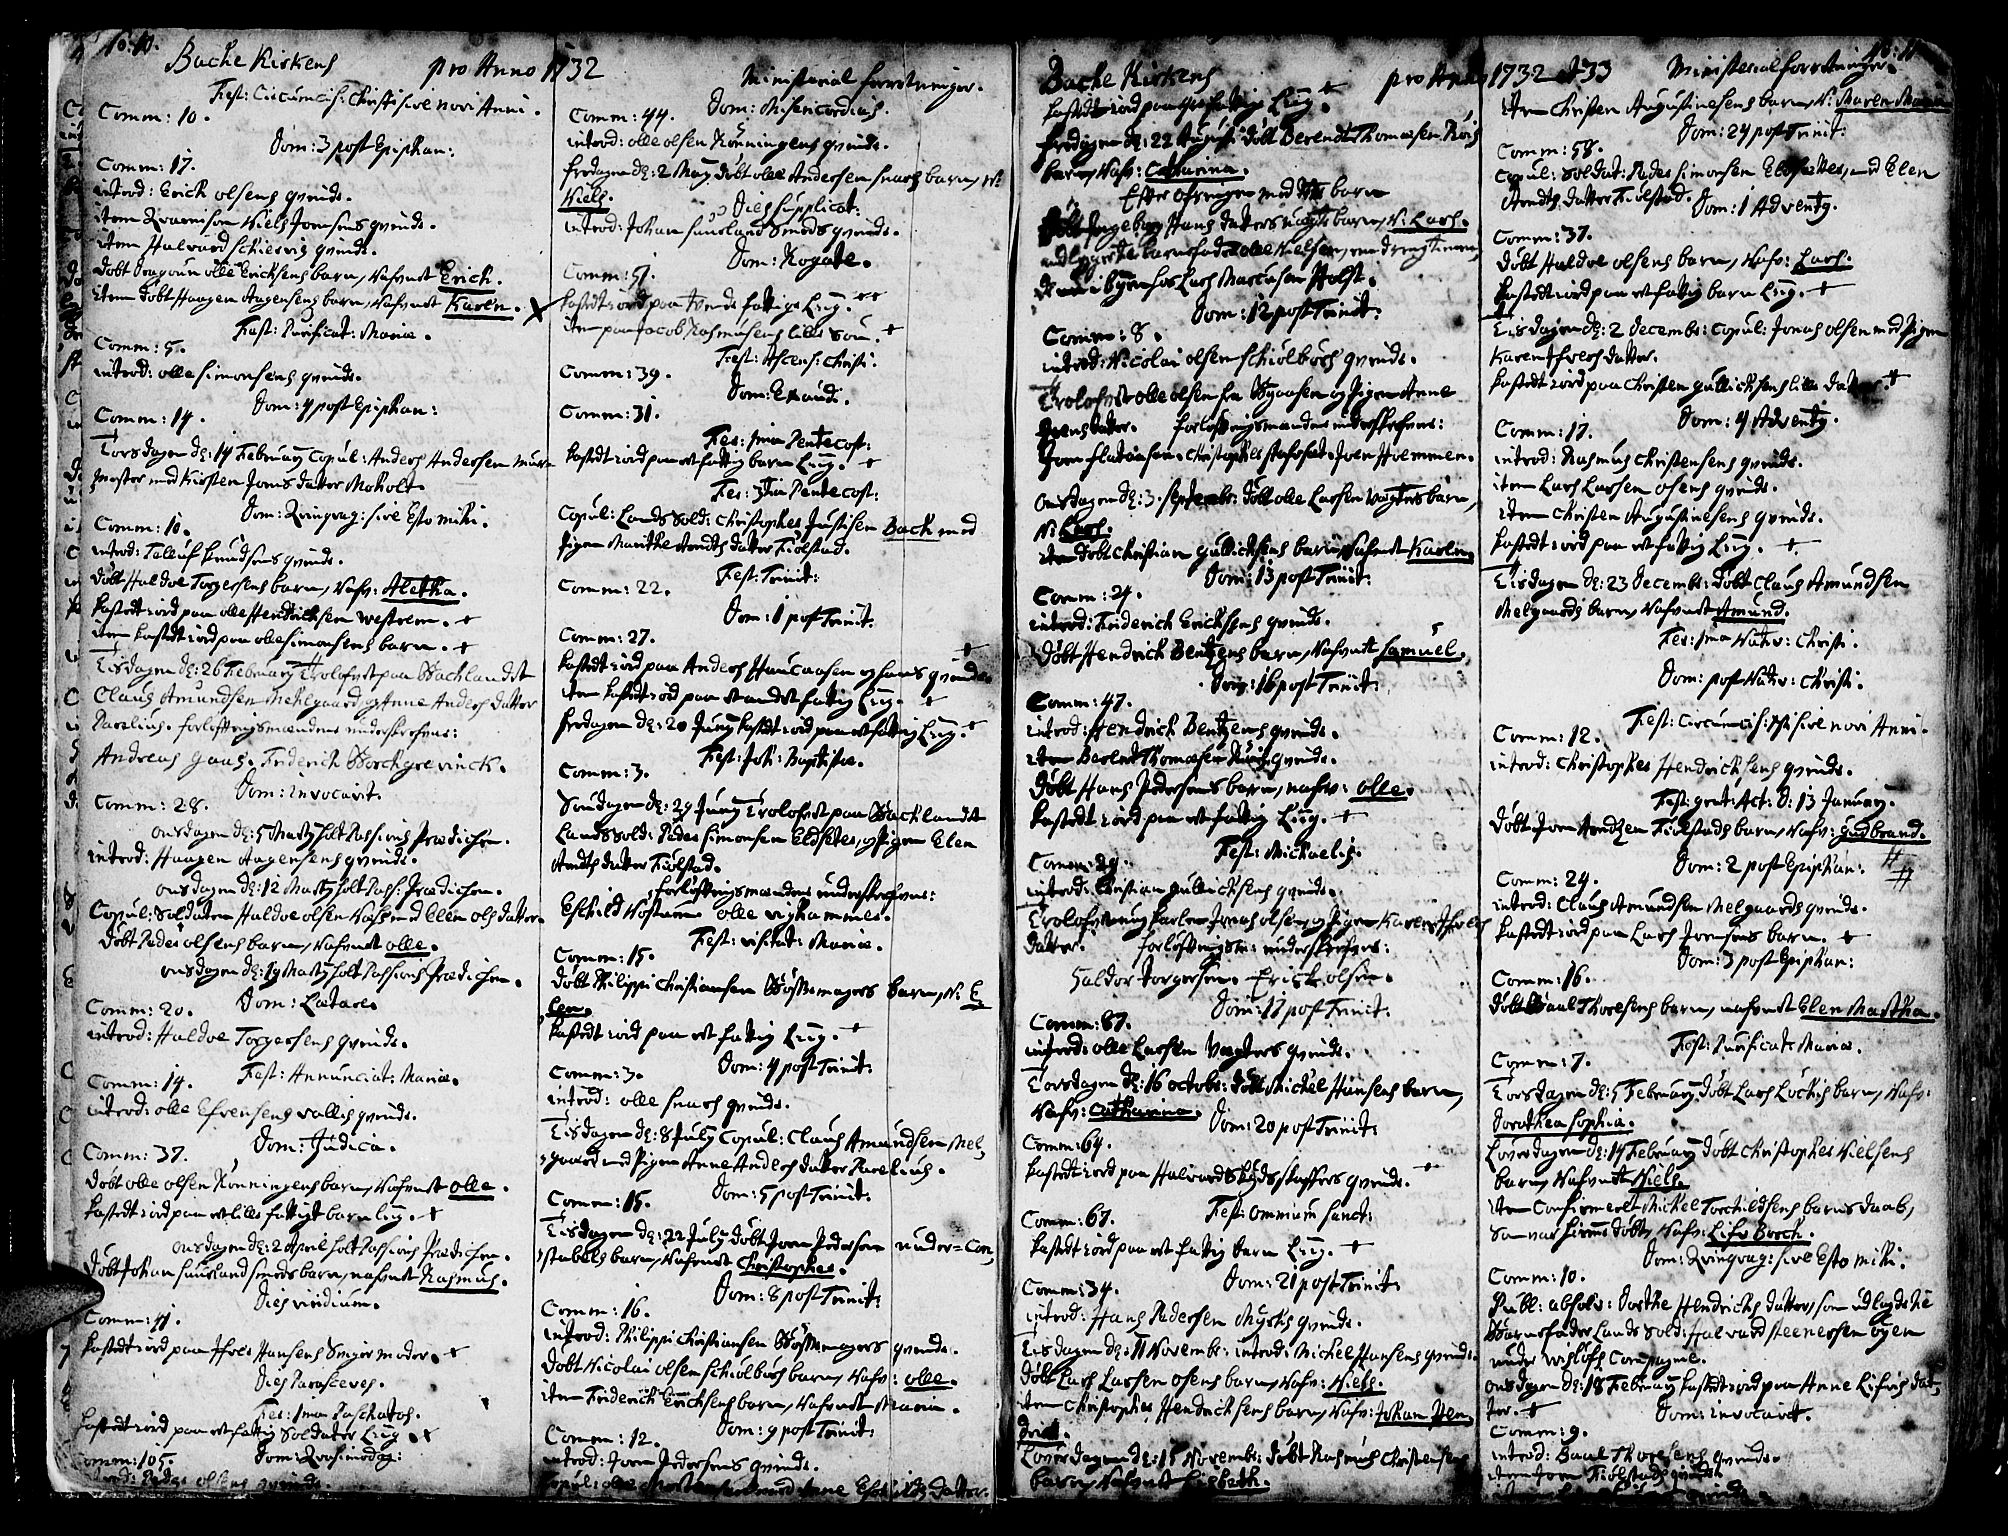 No: 10.
Bache Kirkens pro Anno 1732 Ministerial forretninger.
Fest: Circumcis: Christi sive novi Anni.
Comm: 10.
Dom: 3 post Epiphan:
Comm: 17.
introd: Erick olsens qvinde.
item Niels Joensens qvinde.
item Halvard qvinde.
döbt Dragoun olle Ericksens barn, Nafnet Erick.
item döbt Haagen Aagensens barn, Nafnet Karen.
Fest: Purificat: Mariæ.
Comm: 5.
introd: olle simonsens qvinde.
Dom: 4 post Epiphan:
Comm: 14.
Torsdagen de: 14 February Copul: Anders Andersen mur-
mester med Kirsten Joens datter Moholt.
Dom: Qvinqvag: sive Esto mihi.
Comm: 10.
introd: Tolluf knudsens qvinde.
döbt Haldoe Torgersens barn, Nafn: Aletha.
kastedt iord paa olle Hendrichsen westrem. +
item kastedt iord paa olle simonsens barn. +
Tisdagen de: 26 February Trolofvet paa Bachlandet
Claus Amundsen Mehlgaard og Anne Anders datter
Parelius. forlofteningsmændene underskrefvne:
Andreas gaas. Friderich Borchgrevinck.
Dom: invocavit.
Comm: 28.
onsdagen de: 5 Marty holt Passions Prædichen.
introd: Haagen Aagensens qvinde.
onsdagen de: 12 Marty holt Pass: Prædichen.
Copul: Soldaten Haldoe olsen med Ellen ols datter.
döbt Peder olsens barn, Nafnet olle.
onsdagen de: 19 Marty holt Passions Prædichen.
Comm: 20. Dom: Lætare.
introd: Haldoe Torgersens qvinde.
Comm: 14. Fest: Annunciat: Mariæ.
introd: olle Efvensens vallis qvinde.
Dom: Judica.
Comm: 37.
döbt olle olsen Rönningens barn, Nafnet olle.
kastedt iord paa et lille fattigt barn liig. +
onsdagen de: 2 April holt Passions Prædichen.
döbt Johan suusland smeds barn, nafnet Rasmus.
Dies viridium.
Comm: 41.
kastedt iord paa Ifver Hansens Svigermoder. +
Dies Parasceves.
Fer: 1ma Paschatos.
kastedt iord paa et fattig Soldater liig. +
Comm: 105. Dom: Qvasimodog:
introd: Peder olsens qvinde.
Dom: Misericordias.
Comm: 44.
introd: olle olsen Rönningens qvinde.
fredagen de: 2 May döbt olle Andersen snarss barn, N:
Niels.
Dies supplicat:
introd: Johan suusland Smeds qvinde.
Dom: Rogate.
Comm: 51.
kastedt iord paa tvende fattige liig. ++
item paa Jacob Rasmusens lille Sön. +
Fest: Ascens: Christi.
Comm: 39.
Dom: Exaudi.
Comm: 31.
Fer: 1ma Pentecost:
kastedt iord paa et fattig barn liig. +
Fer: 3tia Pentecost:
Copul: Lands Sold: Christopher Justisen Bach med
Pigen Marithe Arndts datter Fiolstad.
Fest: Trinit:
Comm: 22.
Dom: 1 post Trinit:
Comm: 27.
kastedt iord paa Anders Haucaasen og hans qvinde +
item kastedt iord paa et andet fattig liig. +
fredagen de: 20 Juny kastedt iord paa et fattig liig. +
Fest: Joh: Baptistæ.
Comm: 3.
Söndagen de: 29 Juny Trolofvet paa Bachlandet
Lands Sold: Peder simonsen Eldsetes, og Pigen Elen
Arndts datter Fiolstad.
forlofteningsmændene underskrefvne:
Eskild Rostum olle vighammer.
Fest: visitat: Mariæ.
Comm: 15.
döbt Philippi Christiansen Bösemagers barn, N: E-
len.
kastedt iord paa et fattig liig. +
Comm: 3. Dom: 4 post Trinit:
introd: olle snars qvinde.
Tisdagen de: 8 July Copul: Claus Amundsen Mel-
gaard med Pigen Anne Anders datter Parelius.
Comm: 15. Dom: 5 post Trinit:
Tisdagen de: 22 July döbt Joen Pedersen under-Con-
stabels barn, Nafnet Christopher.
Dom: 8 post Trinit:
Comm: 16.
introd: Philippi Christiansen Bösemagers qvinde.
döbt Nicolai olsen schiolbörs barn, Nafn: olle.
item Friderich Ericksens barn, Nafnet Maria.
Dom: 9 post Trinit:
Comm: 12.
introd: Joen Pedersens qvinde.
Copul: olle Mortensen med Anne Eskilds datter.
No: 11.
Bache Kirkens pro Anno 1732 et 33 Ministerial forretninger.
kastedt iord paa fattig liig. +
fredagen de: 22 Augusti döbt Berendt Thomæsen Röis
barn, Nafn: Catharina.
döbt Ingebor Hans datters uægte barn, N: Lars.
udlagt barnefader olle Nielsen,
Dom: 12 post Trinit:
Comm: 8.
introd: Nicolai olsen schiolbörs qvinde.
Trolofvet olle olsen og Pigen Anne
Joens datter. forlofteningsmændene underskrefvne:
Joen flataasen. Christopher Joen Hoemmen.
onsdagen de: 3. septembr: döbt olle Larsen vægters barn,
N: Lars.
item döbt Christian gullichsens barn, Nafnet Karen.
Dom: 13 post Trinit:
Comm: 24.
introd: Friderich Ericksens qvinde.
döbt Hendrick Bentzens barn, Nafnet Samuel.
Dom: 16 post Trinit:
Comm: 47.
introd: Hendrick Bentzens qvinde.
item Berent Thomæsen Röis qvinde.
döbt Hans Pedersens barn, nafn: olle.
kastedt iord paa et fattig liig. +
Fest: Michaelis.
Comm: 29.
introd: Christian gullichsens qvinde.
Trolofvet ung karlen Jonas olsen, og Pigen Karen Ifvers
datter. forlofteningsm: underskrefvne:
Haldor Torgersen. Erick olsen.
Dom: 17 post Trinit:
Comm: 87.
introd: olle Larsen vægters qvinde.
Torsdagen de: 16 octobr: döbt Mickel Hansens barn,
Nafn: Catharina.
Dom: 20 post Trinit:
Comm: 64.
kastedt iord paa Halvard qvinde. +
Fest: omnium sanct:
Comm: 67.
kastedt iord paa et fattig barn liig. +
Dom: 21 post Trinit:
Comm: 34.
introd: Hans Pedersen qvinde.
Tisdagen de: 11 Novembr: introd: Michel Hansens qvinde.
döbt Lars Larsen osens barn, Nafn: Niels.
item Christopher Hendrichsens barn, Nafn: Johan Hen-
drick.
Löverdagen de: 15 Novembr: döbt Rasmus Christensens
barn, Nafnet Lisbath.
item Christen Augustinesens barn, N: Maren Maria
Dom: 24 post Trinit:
Comm: 58.
Copul: Soldat: Peder simonsen Eldsettes, med Elen
Arndts datter Fiolstad.
Dom: 1 Advents.
Comm: 37.
döbt Haldoe olsens barn, Nafn: Lars.
kastedt iord paa et fattig barn liig. +
Tisdagen de: 2 Decembr: Copul: Jonas olsen med Pigen
Karen Ifvers datter.
kastedt iord paa Christen gullichsens lille datter. +
Dom: 4 Advents.
Comm: 17.
introd: Rasmus Christensens qvinde.
item Lars Larsen osens qvinde.
item Christen Augustinesens qvinde.
kastedt iord paa et fattig liig. +
Tisdagen de: 23 Decembr: döbt Claus Amundsen
Melgaards barn, Nafnet Amund.
Fer: 1ma Nativ: Christi.
Dom: post Nativ: Christi.
Fest: Circumcis: Xsti sive novi Anni.
Comm: 12.
introd: Christopher Hendrichsens qvinde.
Fest: grat: Act: d: 13 January.
döbt Joen Arndtzen Fiolstads barn, Nafn: Gudbrand.
Dom: 2 post Epiphan:
Comm: 24.
introd: Claus Amundsen Melgaards qvinde.
kastedt iord paa Lars Joensens barn. +
Dom: 3 post Epiphan:
Comm: 16.
döbt Baul Thoresens barn, nafnet Elen Martha.
Fest: Purificat: Mariæ.
Comm: 7.
Torsdagen de: 5 February döbt Lars Lockis barn, Nafn:
Dorothea Sophia.
Löverdagen de: 14 February döbt Christopher Nielsens
barn, Nafnet Niels.
item Confirmeret Mickel Torchildsens barns daab,
som var hiemme döbt, Nafn: Lisv Borck.
Dom: Qvinqvag: sive Esto mihi.
Comm: 10.
Publ: absolv: Dorthe Hendrichs datter, som udlagde til
Barnefader Lands Sold: Halvard steenersen öyen
under wislöfs Compagnie.
onsdagen de: 18 February kastedt iord paa Anne dat-
ter. + Dom: invocavit.
Comm: 9.
introd: Baul Thoresens qvinde.
item Joen Fiolstads qvinde.